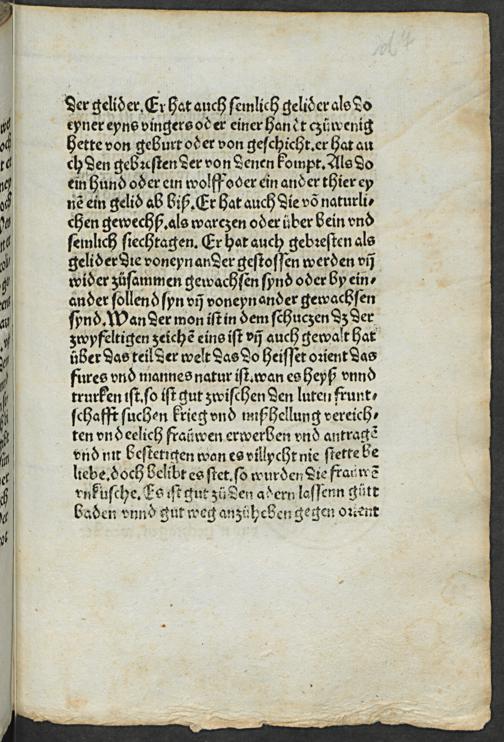 der gelider. Er hat auch semlich gelider als do
eyner eyns vingers oder einer handt czü wenig
hette von geburt oder von geschicht. er hat au
ch den gebresten der von denen kompt. Als do
ein hund oder ein wolff oder ein ander thier ey
nē ein gelid ab biß. Er hat auch die vō naturli⸗
chen gewechß. als warczen oder über bein vnd
semlich siechtagen. Er hat auch gebresten als
gelider die voneynander gestossen werden vñ
wider züsammen gewachsen synd oder by ein⸗
ander sollend syn vñ voneynander gewachsen
synd. Wan der mon ist in dem schuczen dz der
zwyfeltigen zeichē eins ist vñ auch gewalt hat
über das teil der welt das do heisset orient das
fures vnd mannes natur ist. wan es heyß vnnd
trurken ist. so ist gut zwischen den luten frunt⸗
schafft suchen krieg vnd mißhellung vereich⸗
ten vnd eelich fraüwen erwerben vnd antragē
vnd nit bestetigen wan es villycht nie stette be
liebe. doch belibt es stet. so wurden die frauwē
vnküsche. Es ist gut zü den adern lassenn gütt
baden vnnd gut weg anzüheben gegen orient